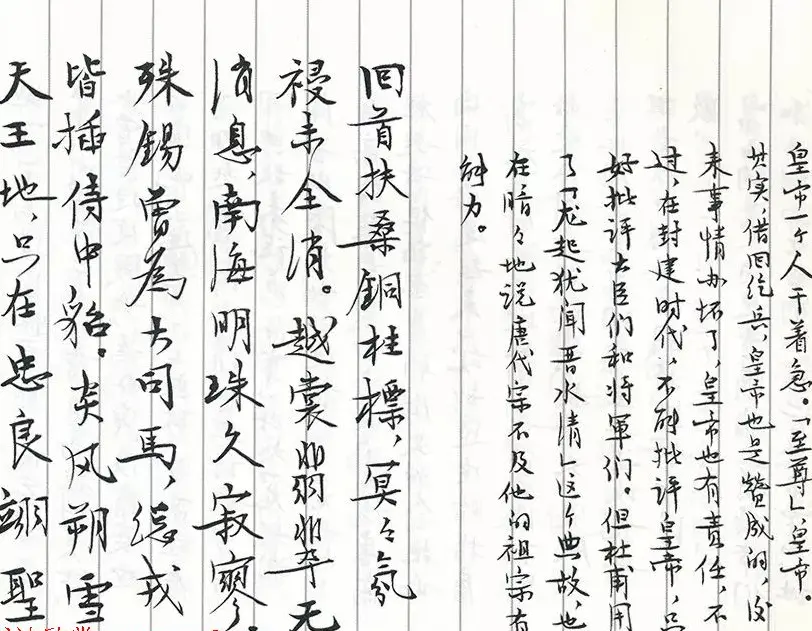 皇帝一个人干着急。「至尊」皇帝。
其实，借回纥兵，皇帝也是赞成的，后
来事情办坏了，皇帝也有责任，不
过，在封建时代，不能批评皇帝，只
好批评大臣们和将軍们。但杜甫用
了「龙起犹闻晋水清」这个典故，也
在暗々地说唐代宗不及他的祖宗有
能力。
回首扶桑銅柱標，冥々氛
祲未全消。越裳翡翠无
消息，南海明珠久寂寥。
殊錫曾為大司馬，総戎
皆插侍中貂。炎风朔雪
天王地，只在忠良翊聖